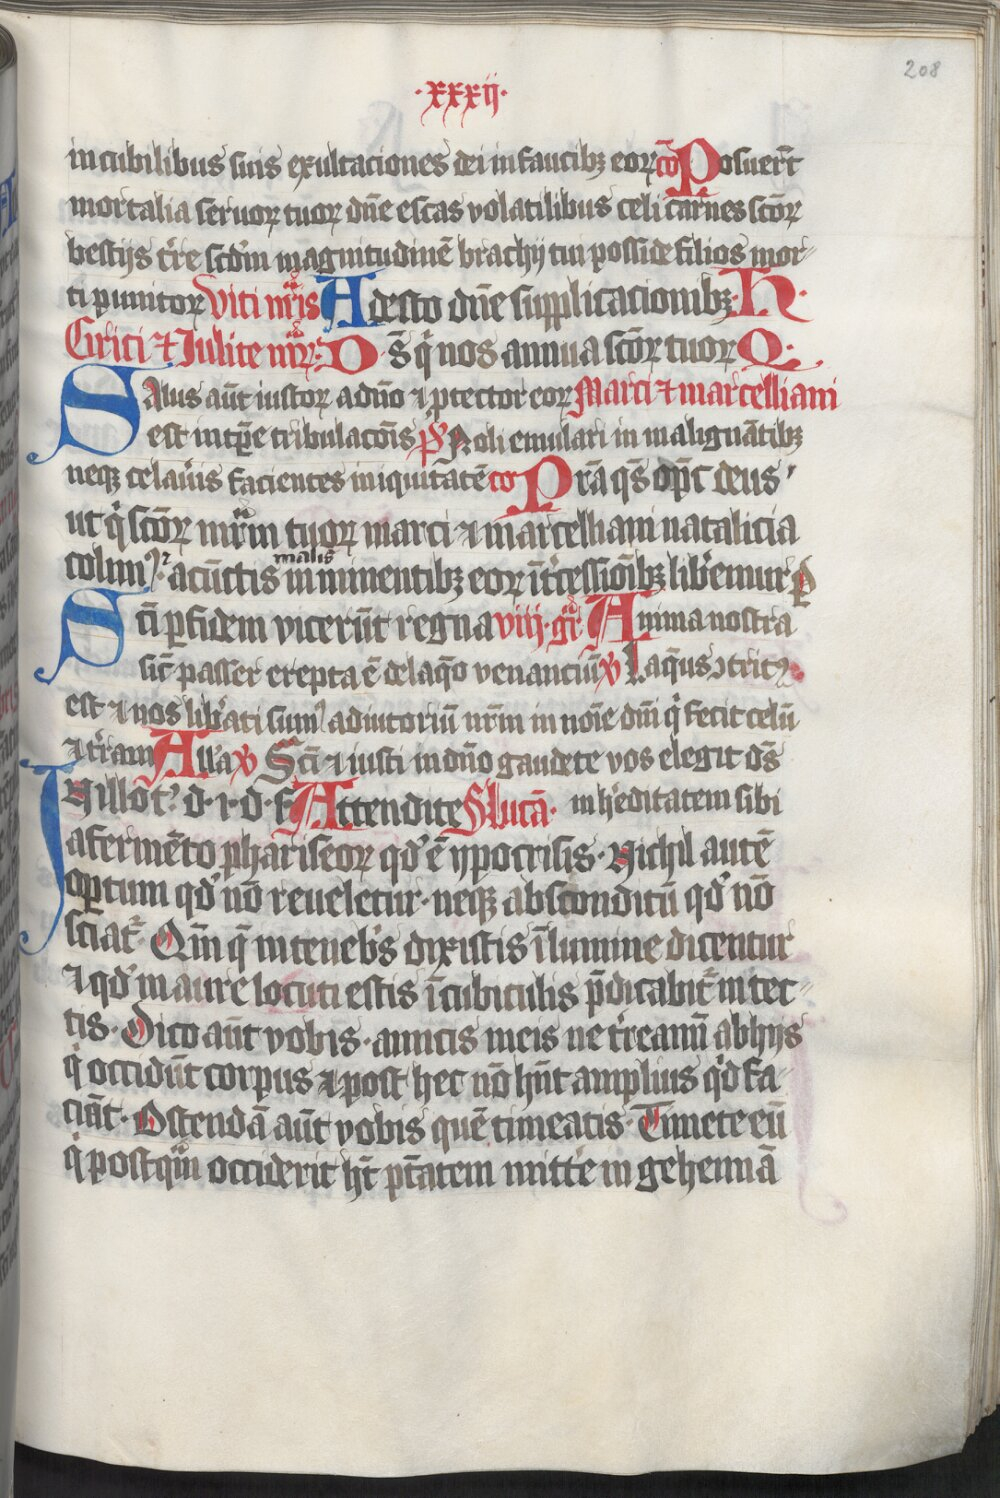 208
·xxxij·
in cubilibus suis exultaciones dei in faucibꝫ eoꝝ cō Posuer̄t
mortalia seruoꝝ tuoꝝ dn̄e escas volatilibus celi carnes sc̄oꝝ
bestijs t̄re scd̄m magnitudinē brachij tui posside filios mor-
ti punitoꝝ Viti mr̄is Adesto dn̄e supplicacionibꝫ· H·
Cirici ⁊ Iulite mr̄ꝝ· D s̄ q̄ nos annua sc̄oꝝ tuoꝝ Q·
Salus aūt iustoꝝ a dn̄o ⁊ ꝓtector eoꝝ Marci ⁊ marcelliani
est in tp̄e tribulacōis ps̄ Noli emulari in malignātibꝫ
neqꝫ celau̇is facientes iniquitatē co Pr̄a qs̄ opc̄ deus
ut q̄ sc̄oꝝ mr̄m tuoꝝ marci ⁊ marcelliani natalicia
colim⁹ a cūctis malis inminentibꝫ eoꝝ īt̄cessiōibꝫ lib̄emur ꝑ
Sc̄i ꝑ fidem vicerūt regna viiij· gr̄ Anima nostra
sic̄ passer erepta ē de laq̄o venanciū v̄ Laq̄us ꝯtrit⁹
est ⁊ nos lib̄ati sum⁹ adiutoriū nr̄m in noīe dn̄i q̄ fecit celū
⁊ t̄ram Alla v̄ Sc̄i ⁊ iusti in dn̄o gaudete vos elegit ds̄
IN illo t̄· d· i· d· s̄ Attendite S· Lucā· in h̄editatem sibi
a fermēto phariseoꝝ qd̄ ē ypocrisis· Nichil autē
opertum qd̄ nō reueletur· neqꝫ absconditū qd̄ nō
sciat̄· Qm̄ q̄ in teneb̄s dixistis ī lumine dicentur
⁊ qd̄ in aure locuti estis ī cubiculis p̄dicabit̄ in tec-
tis· Dico aūt vobis· amicis meis ne t̄reamī ab hijs
q̄ occidūt corpus ⁊ post hec nō hn̄t amplius qd̄ fa-
ciāt· Ostendā aūt vobis quē timeatis· Timete eū
q̄ postqm̄ occiderit ht̄ pt̄atem mitt̄e in gehennā